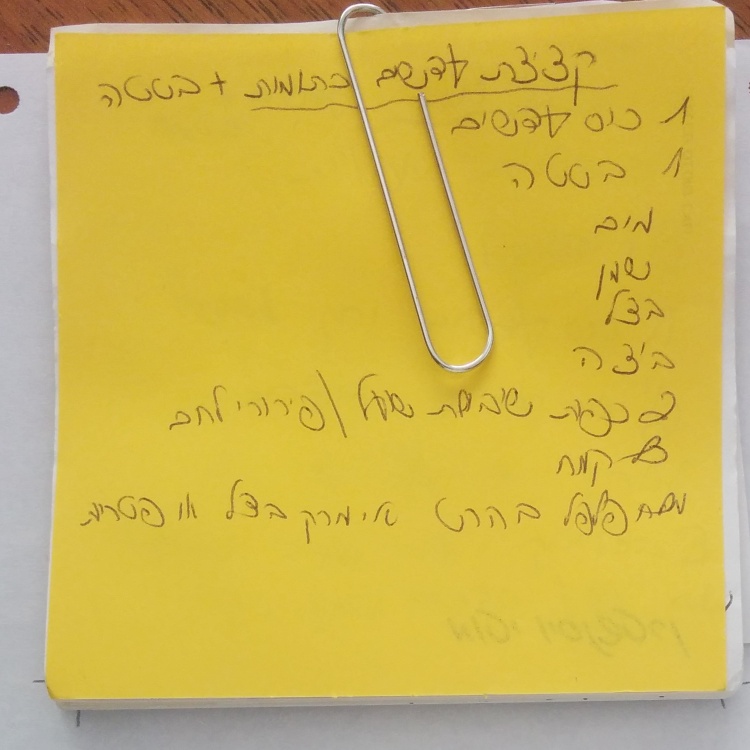 קציצת עדשים כתומות + בטטה
1 כוס עדשים
1 בטטה
מים
שמן
בצל
ביצה
2 כפות שיבולת שועל / פירורי לחם
קמח
מלח פלפל בהרט אימרק בצל או פטריות